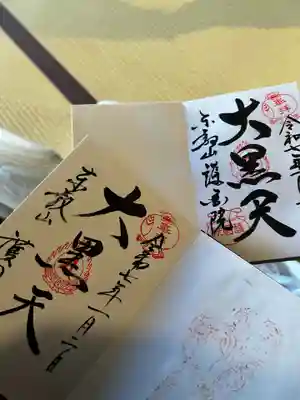 令和七年
大黒天
東叡山 護国院
令和七年一月二日
大黒天
東叡山
護